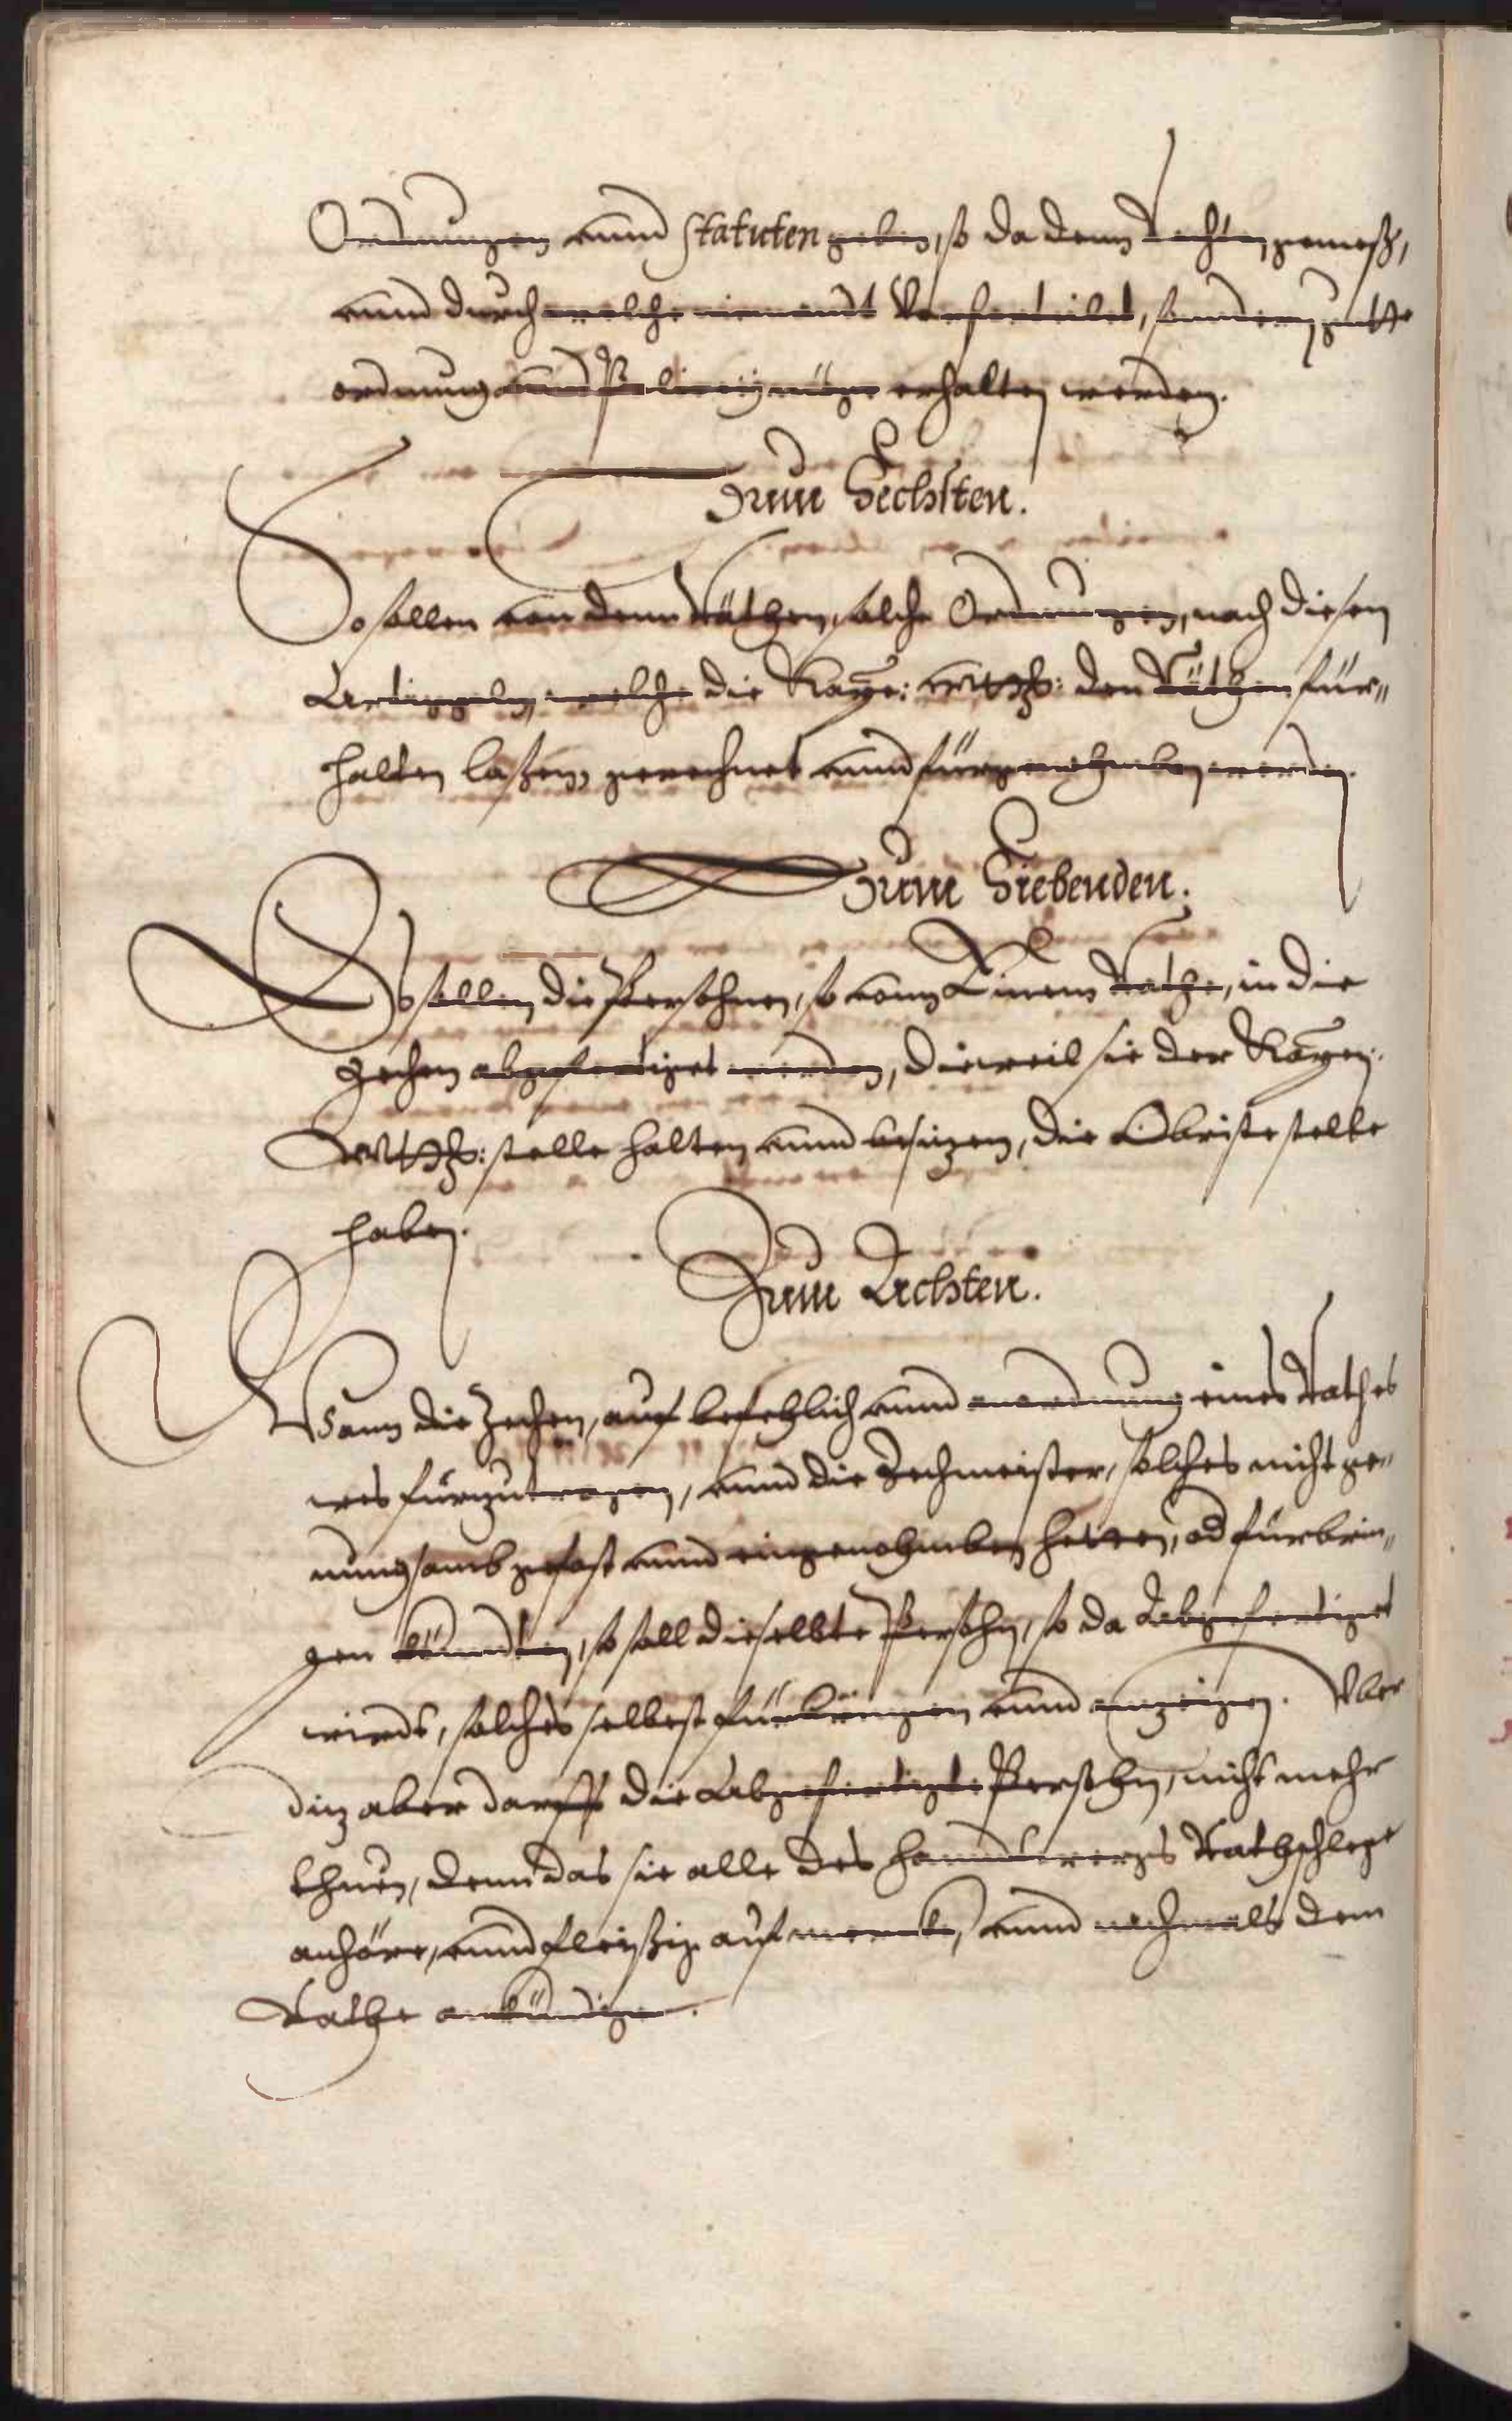 Ordnungen vnnd Statuten geben, so da denn Rechten gemeß,
vnnd durch welche niemandt Verforteilet, sondern gutte
ordnung vnnd Policeÿ müge erhalten werden.
Zum Sechsten.
So sollen von denn Räthen, solche Ordnungen, nach diesen
Articgeln, welche die Kaÿe: Mtt: den Räthen für„
halten laßen, gerechnet vnnd fürgenohmben werden.
Zum Siebenden.
So sollen die Persohnen, so vonn Einem Rathe, in die
Zechen abgefertiget werden, dieweil sie der Kaÿe:
Mtt: stelle halten vnnd besizen, die Obriste stelle
haben.
Zum Achten.
Wann die Zechen, auf befehlich vnnd anordnung eines Rathes
was fürzutragen, vnnd die Zechmeister, solches nicht ge„
nungsamb gefast vnnd eingenohmben hetten, od fürbrin„
gen kündten, so soll dieselbte Persohn, so da Abgefertiget
wirdt, solches selbest fürbringen vnnd anzeigen. Vber
diz aber darff die Abgefertigte Persohn, nicht mehr
thuen, denn das sie alle des handtwergs Rathschlege
anhöre, vnnd fleißig aufmerck, vnnd nachmals dem
Rathe ankündige.